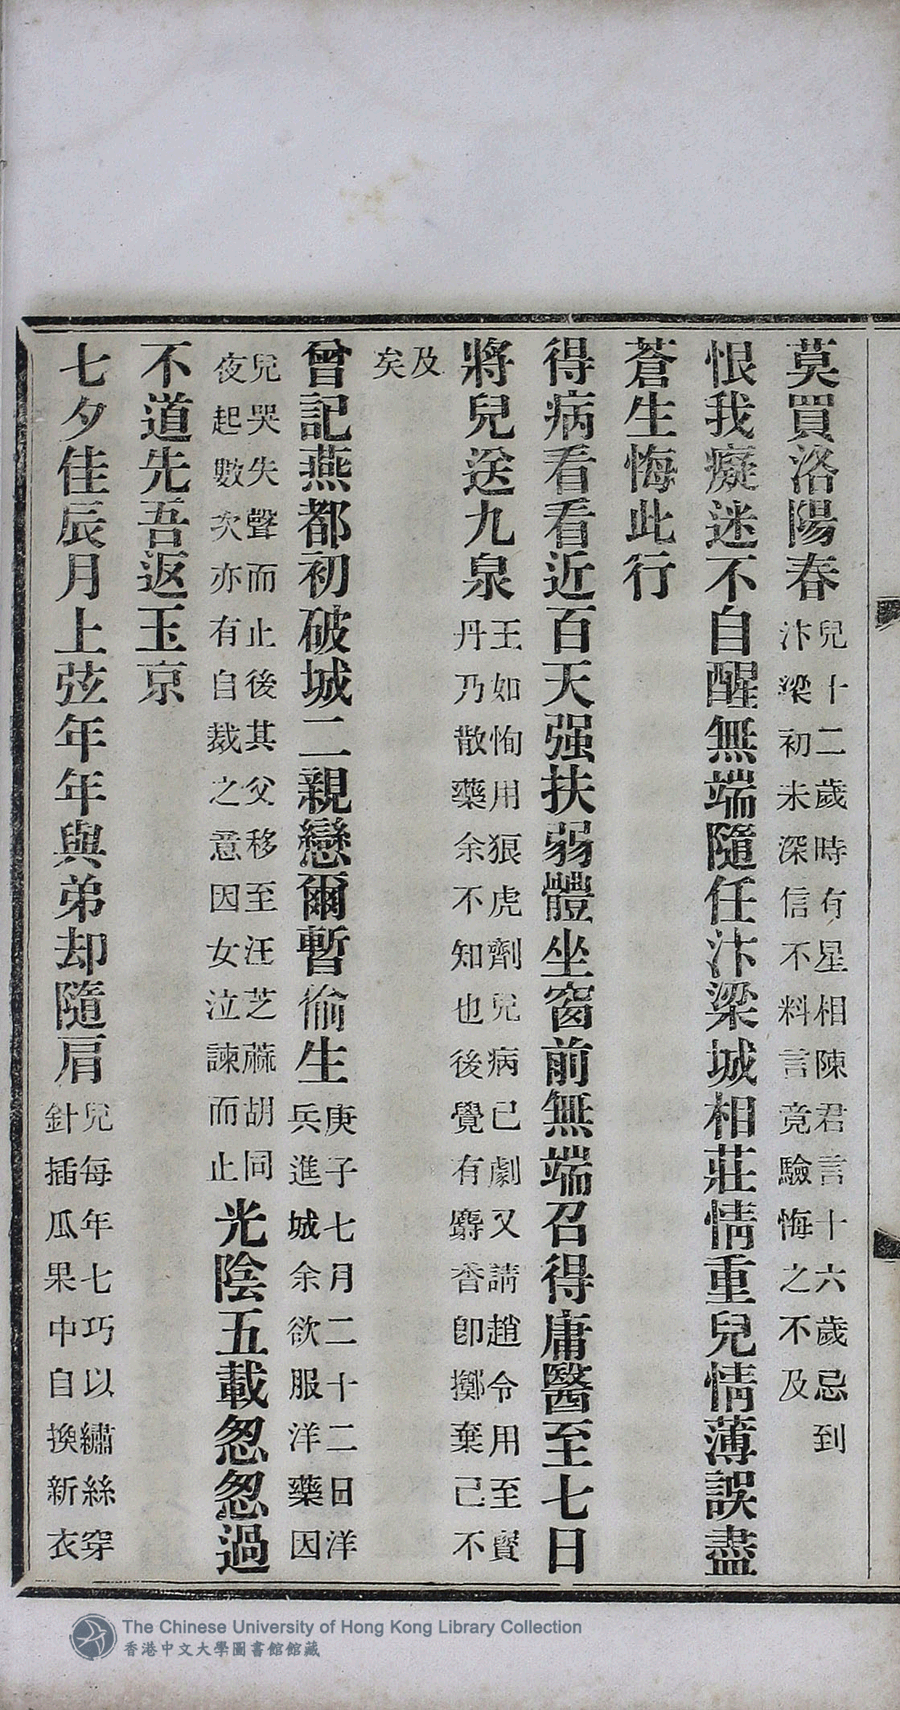 莫買洛陽春兒十二歲時有星相陳君言十六歲忌到汴梁初未深信不料言竟驗悔之不及
恨我癡迷不自醒無端隨任汴梁城相莊情重兒情薄誤盡
蒼生悔此行
得病看看近百天强扶弱體坐窗前無端召得庸醫至七日
將兒送九泉王如恂用狠虎劑兒病已劇又請趙令用至寶丹乃散藥余不知也後覺有麝香卽擲棄已不
及矣
曾記燕都初破城二親戀爾暫偷生庚子七月二十二日洋兵進城余欲服洋藥因
兒哭失聲而止後其父移至汪芝蔴胡同夜起數次亦有自裁之意因女泣諫而止光陰五載怱怱過
不道先吾返玉京
七夕佳辰月上弦年年與弟却隨肩兒每年七巧以繡絲穿針插瓜果中自換新衣
The Chinese University of Hong Kong Library Collection
香港中文大學圖書館館藏